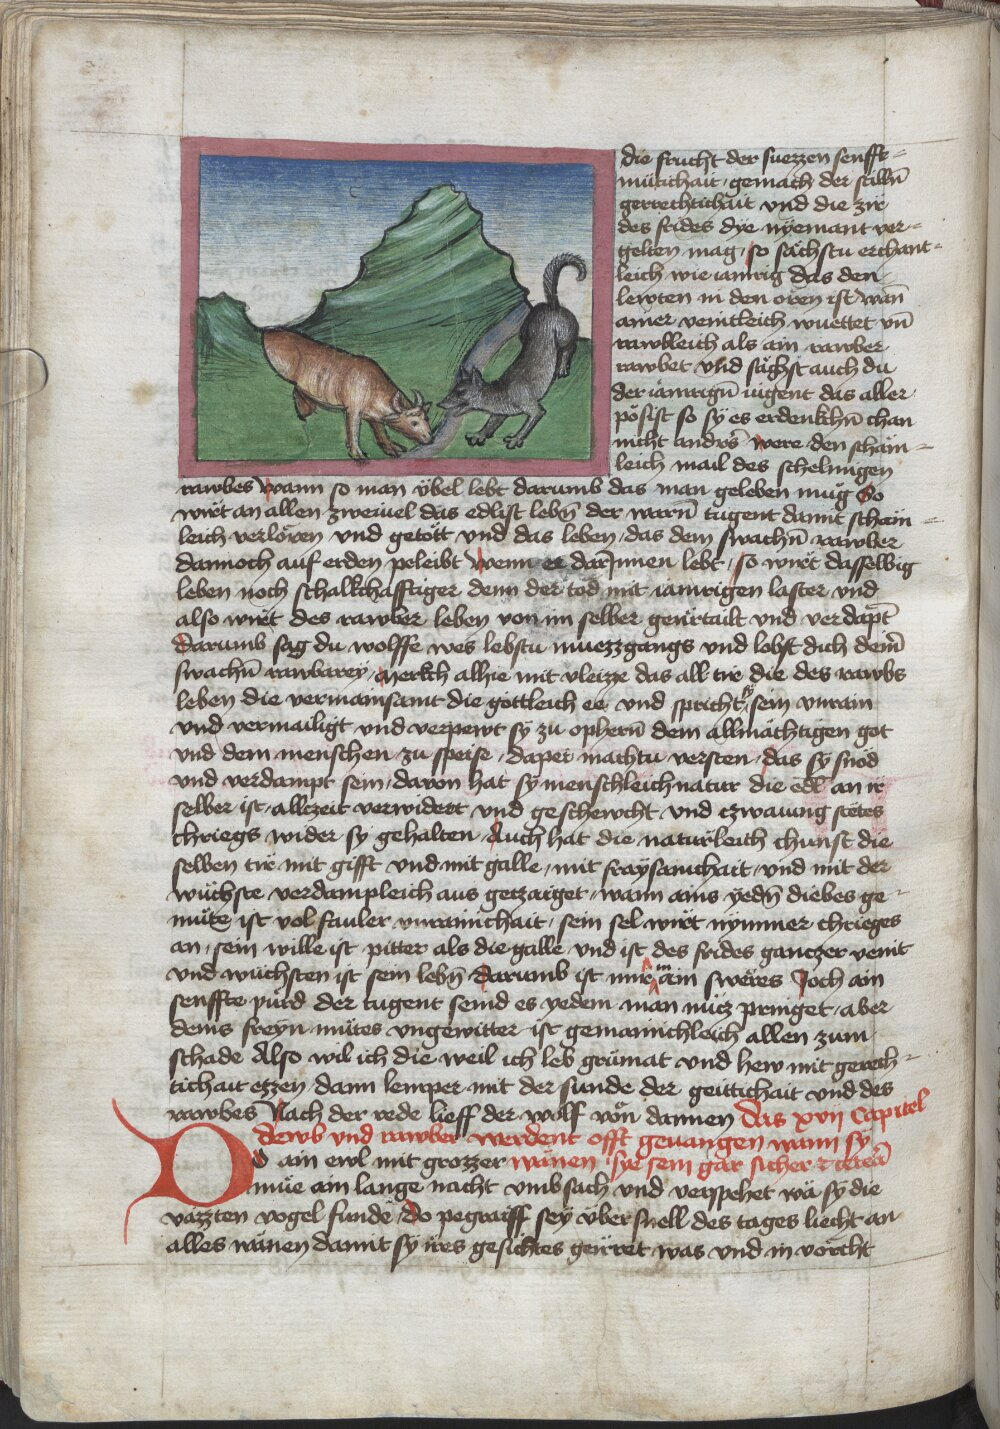 die frucht der suezzen senfft-
mütichait gemach der stillñ
gerechtichait und die zir
des frides dye nyemant ver-
gelten mag, so sächstu erchant-
leich wie iamrig das den
lewten in den oren ist wañ
ainer veintleich wuettet vñ
rawbleich als ain rawber
rawbet und sächst auch du
der iämrigñ iugent das aller
pösist so sy es erdenkhñ chan
nicht anders were den schäm-
leich mail des schelmigen
rawbes wann so man übel lebt darumb das man geleben mug So
wirt an allen zweiuel das edlist lebñ der warñ tugent damit schäm-
leich verloren und getött und das leben, das dem swachñ rawber
dannoch auf erden peleibt wenn er darInnen lebt, so wirt dasselbig
leben noch schalkhafftiger denn der tod mit iamrigen laster vnd
also wirt des rawber leben von im selber geurtailt und verdapt
darumb sag du wolffe wes lebstu muezzgangs und lobst dich dem
swachñ rawbarey, Merkch alhie mit vleize das all tir die des rawbs
leben die vermainsamt die gottleich ee und spricht sy sein unrain
und vermailigt und verpewt sy zu opherñ dem allmächtigen got
und dem menschen zu speise, dapei machtu versten, das sy snöd
und verdampt sein, davon hat sy menschleich natur die edl an ir
selber ist, allczeit verwidert und geschewcht und czwaiung stetes
chriegs wider sy gehalten Auch hat die naturleich chunst die
selben tir mit gifft und mit galle, mit fraysamchait, vnd mit der
wüchste verdampleich aus geczaiget, wann ains yedñ diebes ge-
müte ist vol fauler unrainichait, sein sel wirt nymmer chrieges
an, sein wille ist pitter als die galle und ist des frides gantzer veint
und wüchsten ist sein lebñ darumb ist mir ain sweres Joch ain
senffte pürd der tugent seind es yedem man nücz pringet, aber
deins freyn mütes ungewitter ist gemainichleich allen zum
schade Also wil ich die weil ich leb grümat und hew mit gerech-
tichait ezzen dann lemper mit der sunde der geittichait und des
rawbes Nach der rede lieff der wolf von dannen Das xvii Capitel
dewb und rawber werdent offt geuangen wann sy
wänen sye sein gar sicher
Do ain ewl mit grozzer
müe ain lange nacht umbsach und verspehet wa sy die
väizten vogel funde do pegraiff sey über snell des tages liecht an
alles wänen damit sy ires gesichtes geirret was und in vorcht